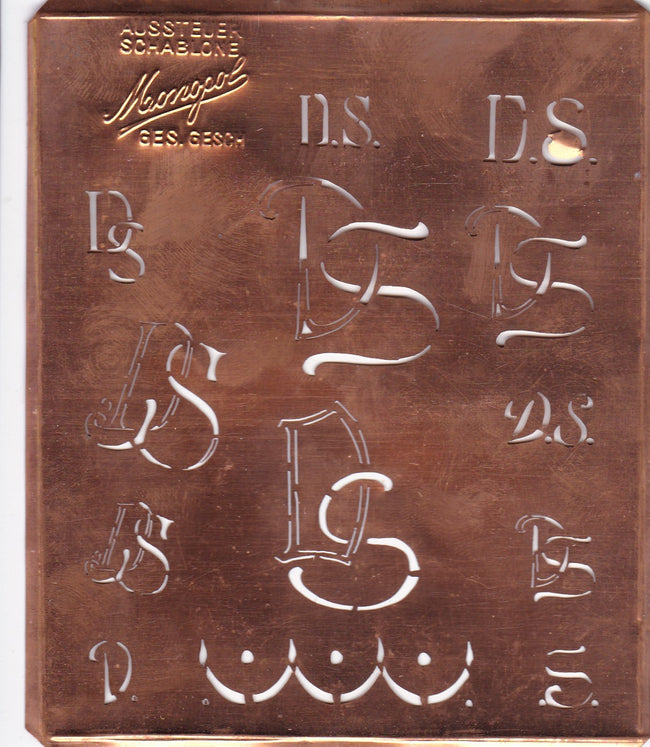 AUSSTEUER
SCHABLONE
Monopol
GES. GESCH
D.S.
D.S.
DS
DS
DS
DS
D.S.
DS
DS
DS
D.
S.